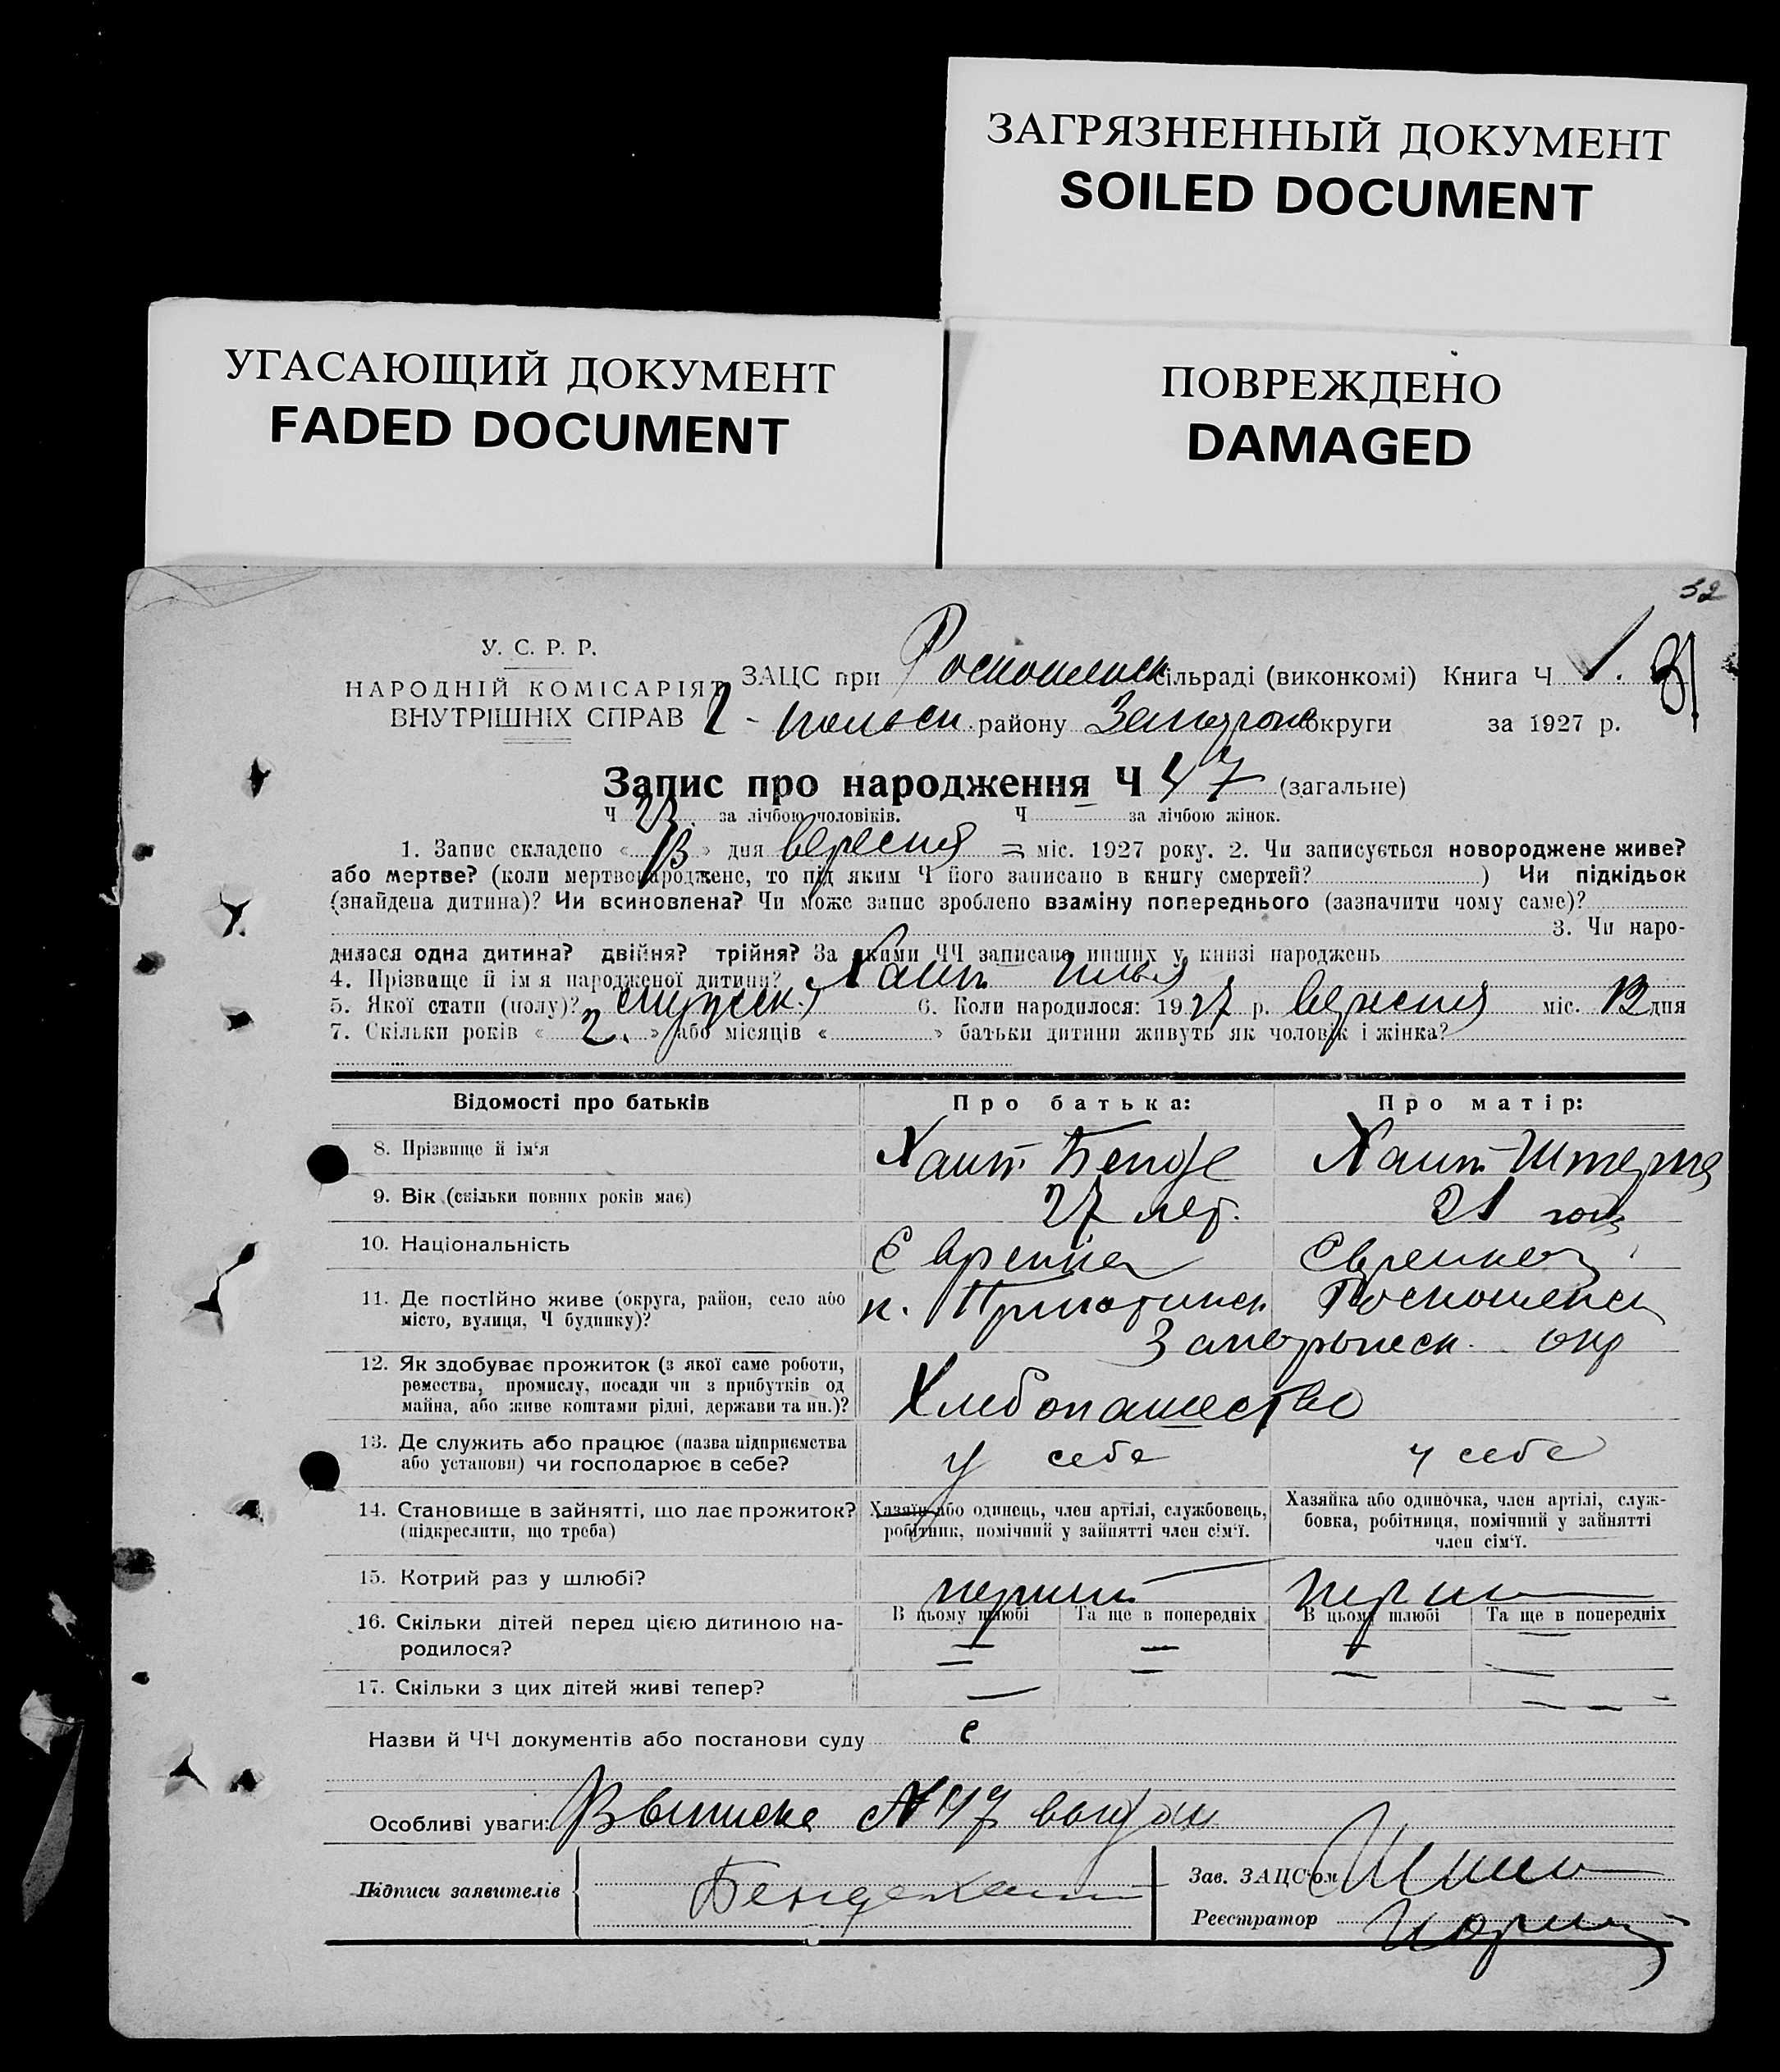 ЗАГРЯЗНЕННЫЙ ДОКУМЕНТ
SOILED DOCUMENT
УГАСАЮЩИЙ ДОКУМЕНТ
FADED DOCUMENT
ПОВРЕЖДЕНО
DAMAGED
32
У. С. Р. Р.
НАРОДНІЙ КОМІСАРІЯТ
ВНУТРІШНІХ СПРАВ
ЗАЦС при Роскошенск сільраді (виконкомі) Книга Ч 1.
району округи за 1927 р.
Запис про народження Ч 47 (загальне)
Ч 23. за лічбою чоловіків. Ч — за лічбою жінок.
1. Запис складено « 13 » дня вересня міс. 1927 року. 2. Чи записується новороджене живе?
або мертве? (коли мертвонароджене, то під яким Ч його записано в книгу смертей? ) Чи підкідьок
(знайдена дитина)? Чи всиновлена? Чи може запис зроблено взаміну попереднього (зазначити чому саме)?
3. Чи наро-
дилася одна дитина? двійня? трійня? За якими ЧЧ записано инших у книзі народжень
4. Прізвище й ім'я народженої дитини? Хаит
5. Якої стати (полу)? мужск. 6. Коли народилося: 1927 р. вересня міс. дня
7. Скільки років « 2. » або місяців « » батьки дитини живуть як чоловік і жінка?
Відомості про батьків Про батька: Про матір:
8. Прізвище й ім'я Хаит Бенде Хаит
9. Вік (скільки повних років має) 27 лет. 21
10. Національність
11. Де постійно живе (округа, район, село або
місто, вулиця, Ч будинку)? Роскошенск
12. Як здобуває прожиток (з якої саме роботи,
ремества, промислу, посади чи з прибутків од
майна, або живе коштами рідні, держави та ин.)? Хлебопашество
13. Де служить або працює (назва підприємства
або установи) чи господарює в себе? у себе у себе
14. Становище в зайнятті, що дає прожиток?
(підкреслити, що треба)
Хазяїн або одинець, член артілі, службовець,
робітник, помічний у зайнятті член сім'ї.
Хазяйка або одиночка, член артілі, служ-
бовка, робітниця, помічний у зайнятті
член сім'ї.
15. Котрий раз у шлюбі?
16. Скільки дітей перед цією дитиною на-
родилося?
В цьому шлюбі Та ще в попередніх В цьому шлюбі Та ще в попередніх
17. Скільки з цих дітей живі тепер?
Назви й ЧЧ документів або постанови суду
Особливі уваги: Выписка № 47 выдан
Підписи заявителів Бенде Хаит
Зав. ЗАЦС'ом
Реєстратор